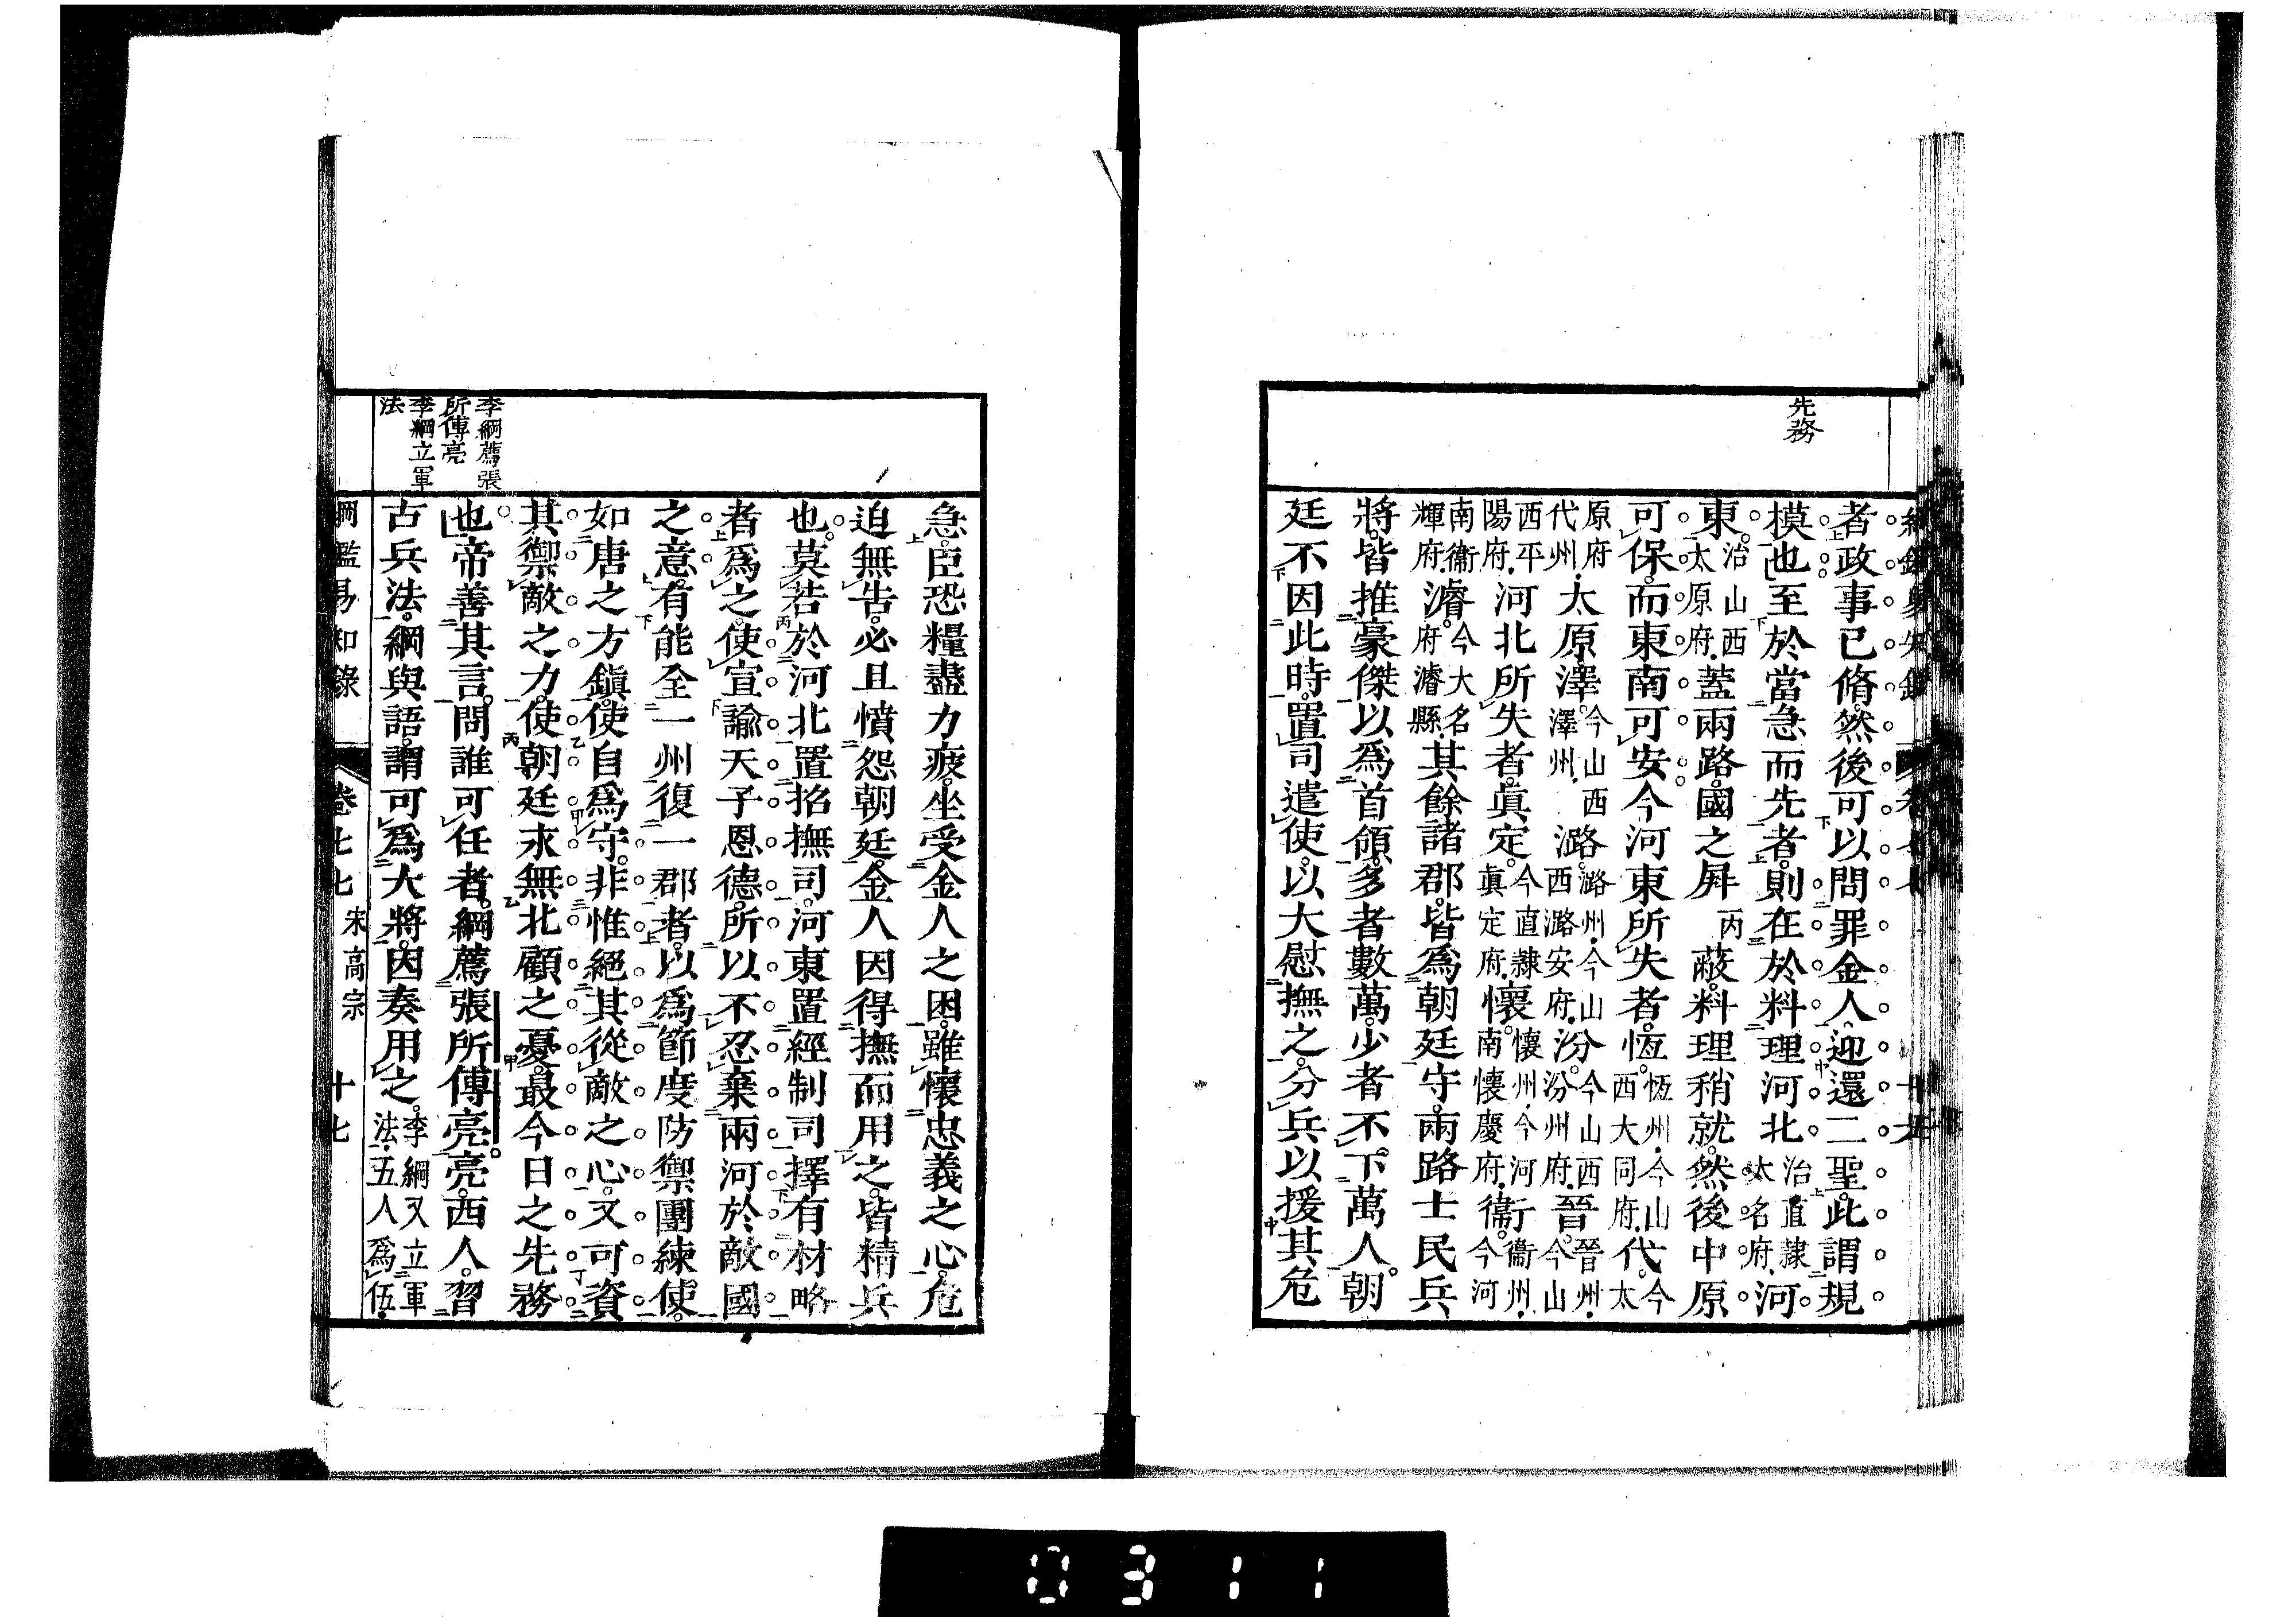 先務
者政事已脩然後可以問罪金人迎還二聖此謂規
摸也至於當急而先者則在於料理河北治直隸大名府河
東治山西太原府蓋兩路國之屛蔽料理稍就然後中原
可保而東南可安今河東所失者恆恆州今山西大同府代今太
原府代州太原澤今山西澤州潞潞州今山西潞安府汾今山西汾州府晉晉州今山
西平陽府河北所失者眞定今直隸眞定府懷懷州今河南懷慶府衞衞州今河
南衞輝府濬今大名府濬縣其餘諸郡皆爲朝廷守兩路士民兵
將皆推豪傑以爲首領多者數萬少者不下萬人朝
廷不因此時置司遣使以大慰撫之分兵以援其危
急臣恐糧盡力疲坐受金人之困雖懷忠義之心危
迫無告必且憤怨朝廷金人因得撫而用之皆精兵
也莫若於河北置招撫司河東置經制司擇有材略
者爲之使宣諭天子恩德所以不忍棄兩河於敵國
之意有能全一州復一郡者以爲節度防禦團練使
如唐之方鎭使自爲守非惟絕其從敵之心又可資
其禦敵之力使朝廷永無北顧之憂最今日之先務
李綱薦張
所傅亮
也帝善其言問誰可任者綱薦張所傅亮亮西人習
李綱立軍
法
古兵法綱與語謂可爲大將因奏用之李綱又立軍法五人爲伍
綱鑑易知錄 卷七七 宋高宗 十七